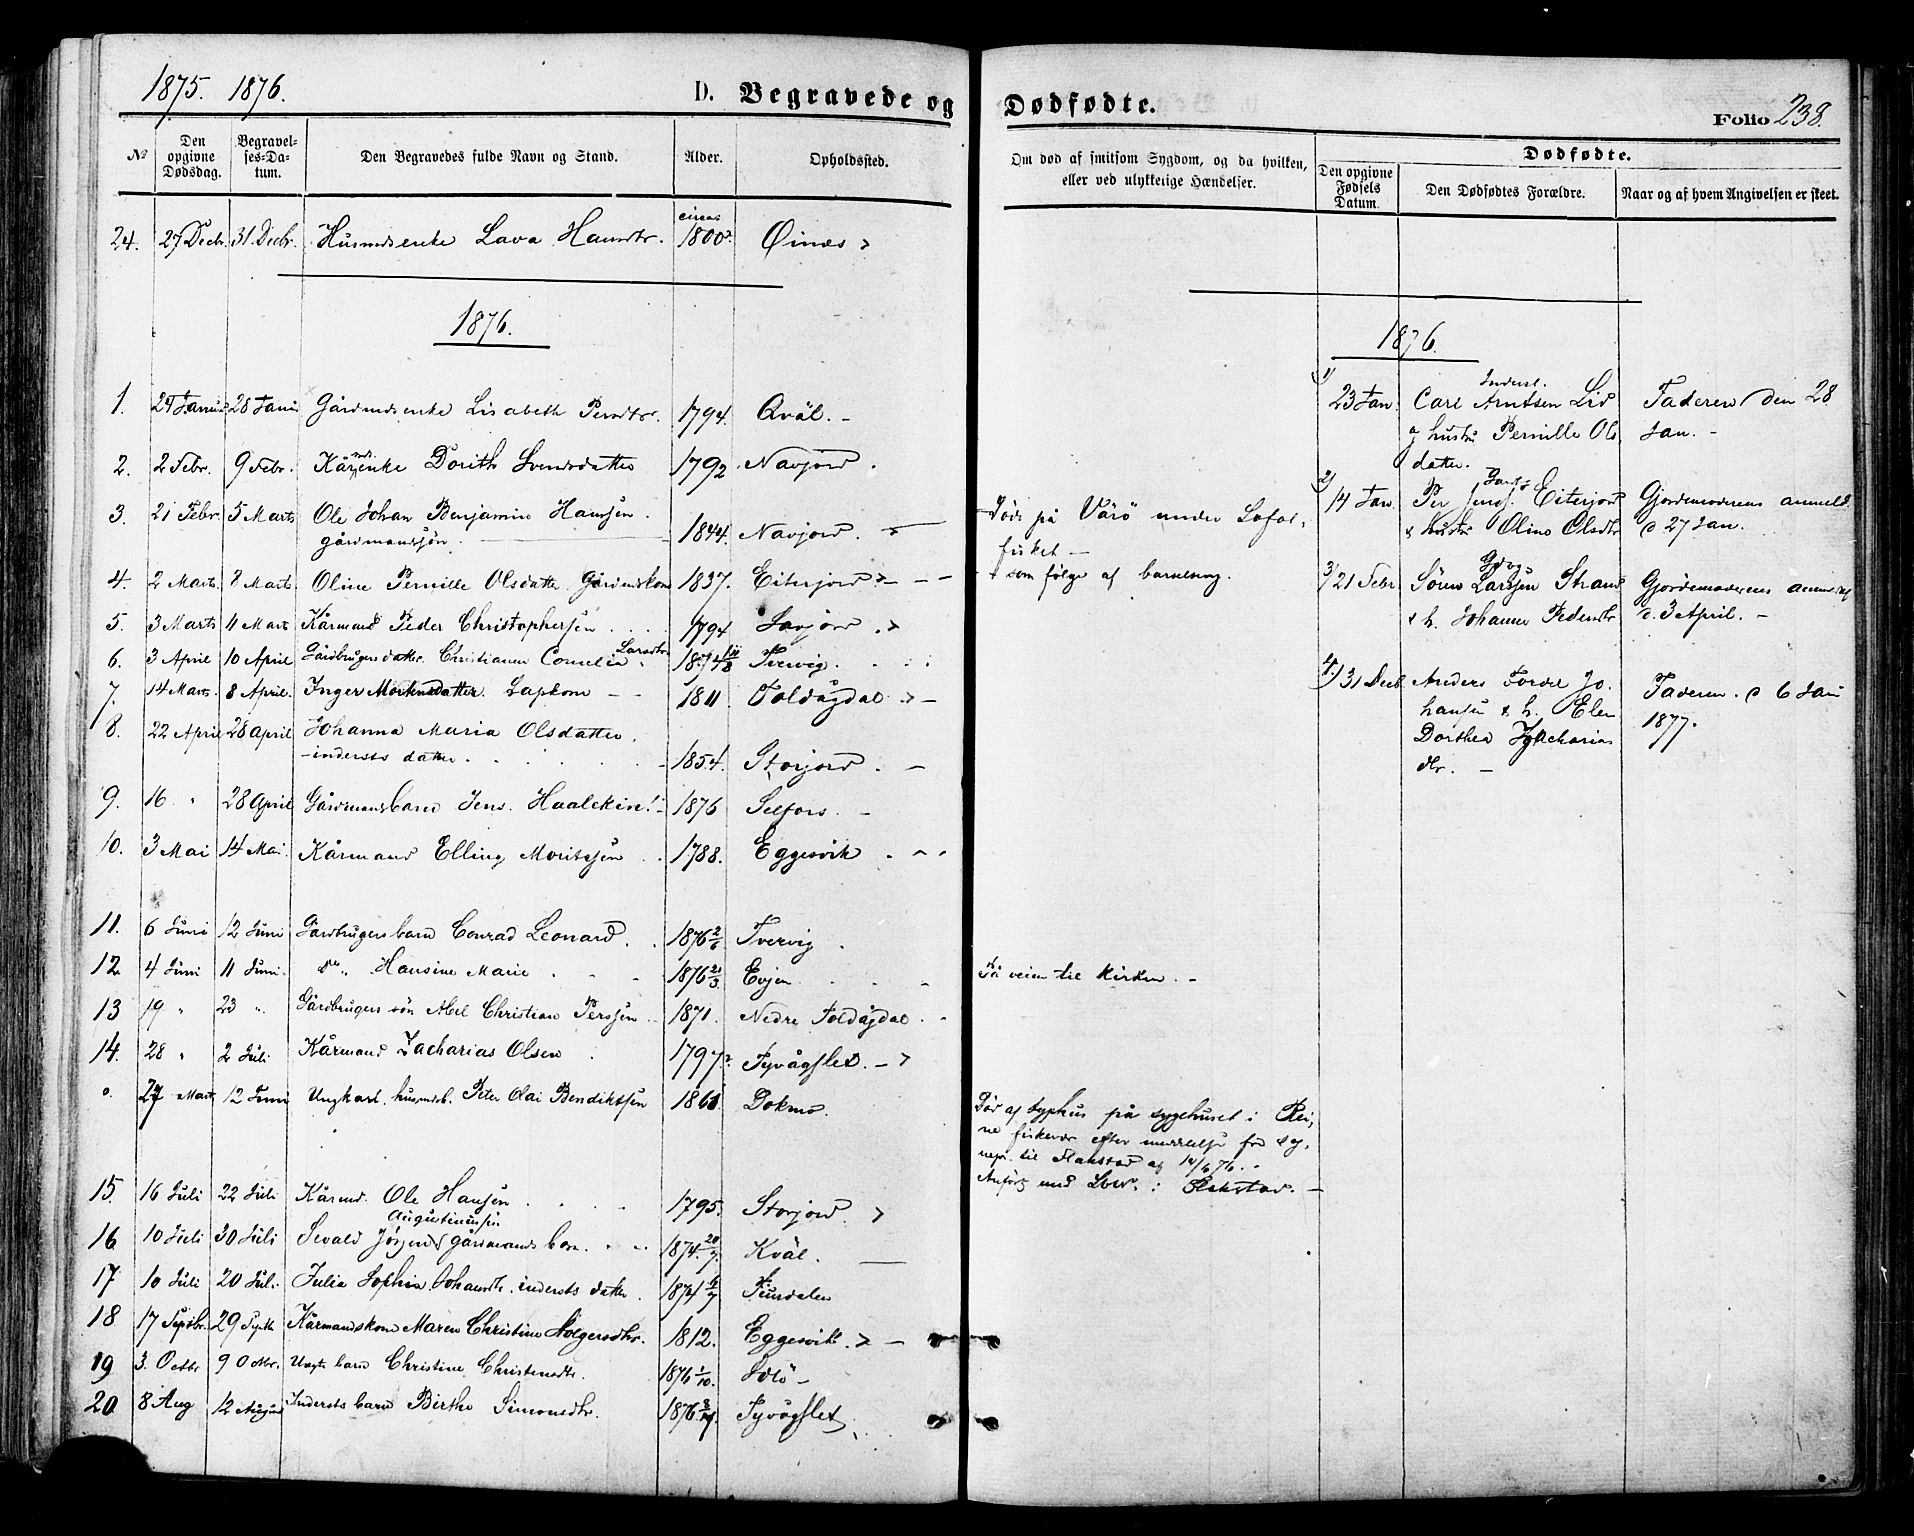 1875. 1876.
D. Begravede og Dødfødte.
Folio 238.
№ Den opgivne Dødsdag. Begravelses-Datum. Den Begravedes fulde Navn og Stand. Alder. Opholdssted.
Om død af smitsom Sygdom, og da hvilken, eller ved ulykkelige Hændelser.
Dødfødte.
Den opgivne Fødsels Datum. Den Dødfødtes Forældre. Naar og af hvem Angivelsen er skeet.
24. 27 Decbr. 31 Decbr. Husmdsenke Lava Hansdtr. circa: 1800? Øines
1876.
1. 24 Januar 28 Januar Gårdmdsenke Lisabeth Persdtr. 1794. Qväl. -
2. 2 Febr. 9 Febr. Kårmd.enke Dorith Svendsdatter 1792. Navjord.
3. 21 Febr. 5 Marts Ole Johan Benjamin Hansen.
gårdmandssøn. 1844. Navjord.
4. 2 Marts. 8 Marts Oline Pernille Olsdatter Gårdmskone 1837. Eiterjord
5. 3 Marts 11 Marts Kårmand Peder Christophersen 1794
6. 3 April 10 April Gårdbrugersdatter. Christianne Cornelia Larsdtr. Tvervig.
7. 14 Marts 8 April. Inger Mortensdatter. Lapkone 1811 Toldågdal
8. 22 April 28 April Johanna Maria Olsdatter.
- indersts datter. 1854. Storjord. -
9. 16 " 28 April Gårdmansbarn Jens. Haalekin! 1876 Selfors. -
10. 3 Mai 14 Mai. Kårmand Elling Moritssen 1788. Eggesvik
11. 6 Juni 12 Juni Gårdbrugers barn Conrad Leonard. 1876 2/6 Tvervig
12 4 Juni 11 Juni. do. Hansine Marie 1876 21/3. Evjen
13 19 " 23 " Gårdbrugers søn Abel Christian Perssen 1871. Nedre Toldågdal.
14. 28 " 2 Juli Kårmand Zacharias Olsen 1797? Tyvågflet. -
o. 27 Marts 12 Juni Ungkarl, husmdsb. Peter Olai Bendiktssen Dokmo.
15. 16 Juli 22 Juli Kårmd. Ole Hansen 1795. Storjord.
16 10 Juli 30 Juli Sevald Jørgen Augustinussen gårdmands barn. 1874. 20/7. Kväl.
17 10 Juli 20 Juli Julia Sophia Johansdtr. indersts datter 1874 Tindalen
18 17 Septbr. 29 Septb. Kårmandskone Maren Christine Holgersdtr. 1812. Eggesvik
19 3. Octbr 9 Octbr. Uægte barn Christine Christensdtr. 1876 1/10.
20 8 Aug 12 August Indersts barn Birthe Simonsdtr. 1876. Tyvågflet
- Døde på Värö under Lofotfisket -
- som følge af barnesäng.
På veien til Kirken. -
Dør af typhus på sygehuset i Reine fiskevär efter meddelelse fra sognepr. til Flakstad af
Anført med Løbe. i Flakstad. -
1876.
1) 23 Jan. Inderst. Carl Arntsen Lid
og hustru Pernille Olsdatter. Faderen den 28 Jan. -
2) 14 Jan Per Jens. Eiterjord
& hustru Oline Olsdtr Gjordemoderens anmeld. d 27 Jan.
3) 21 Febr Gdbrg. Søren Larssen Strand
& h. Johanne Pedersdtr Gjordemoderens anmeld. d. 3 April. -
4.) 31 Decb. Anders Fordel Johansen & h. Elen
Dorthea Zachariasdtr. - Faderen. d 6 Jan 1877.